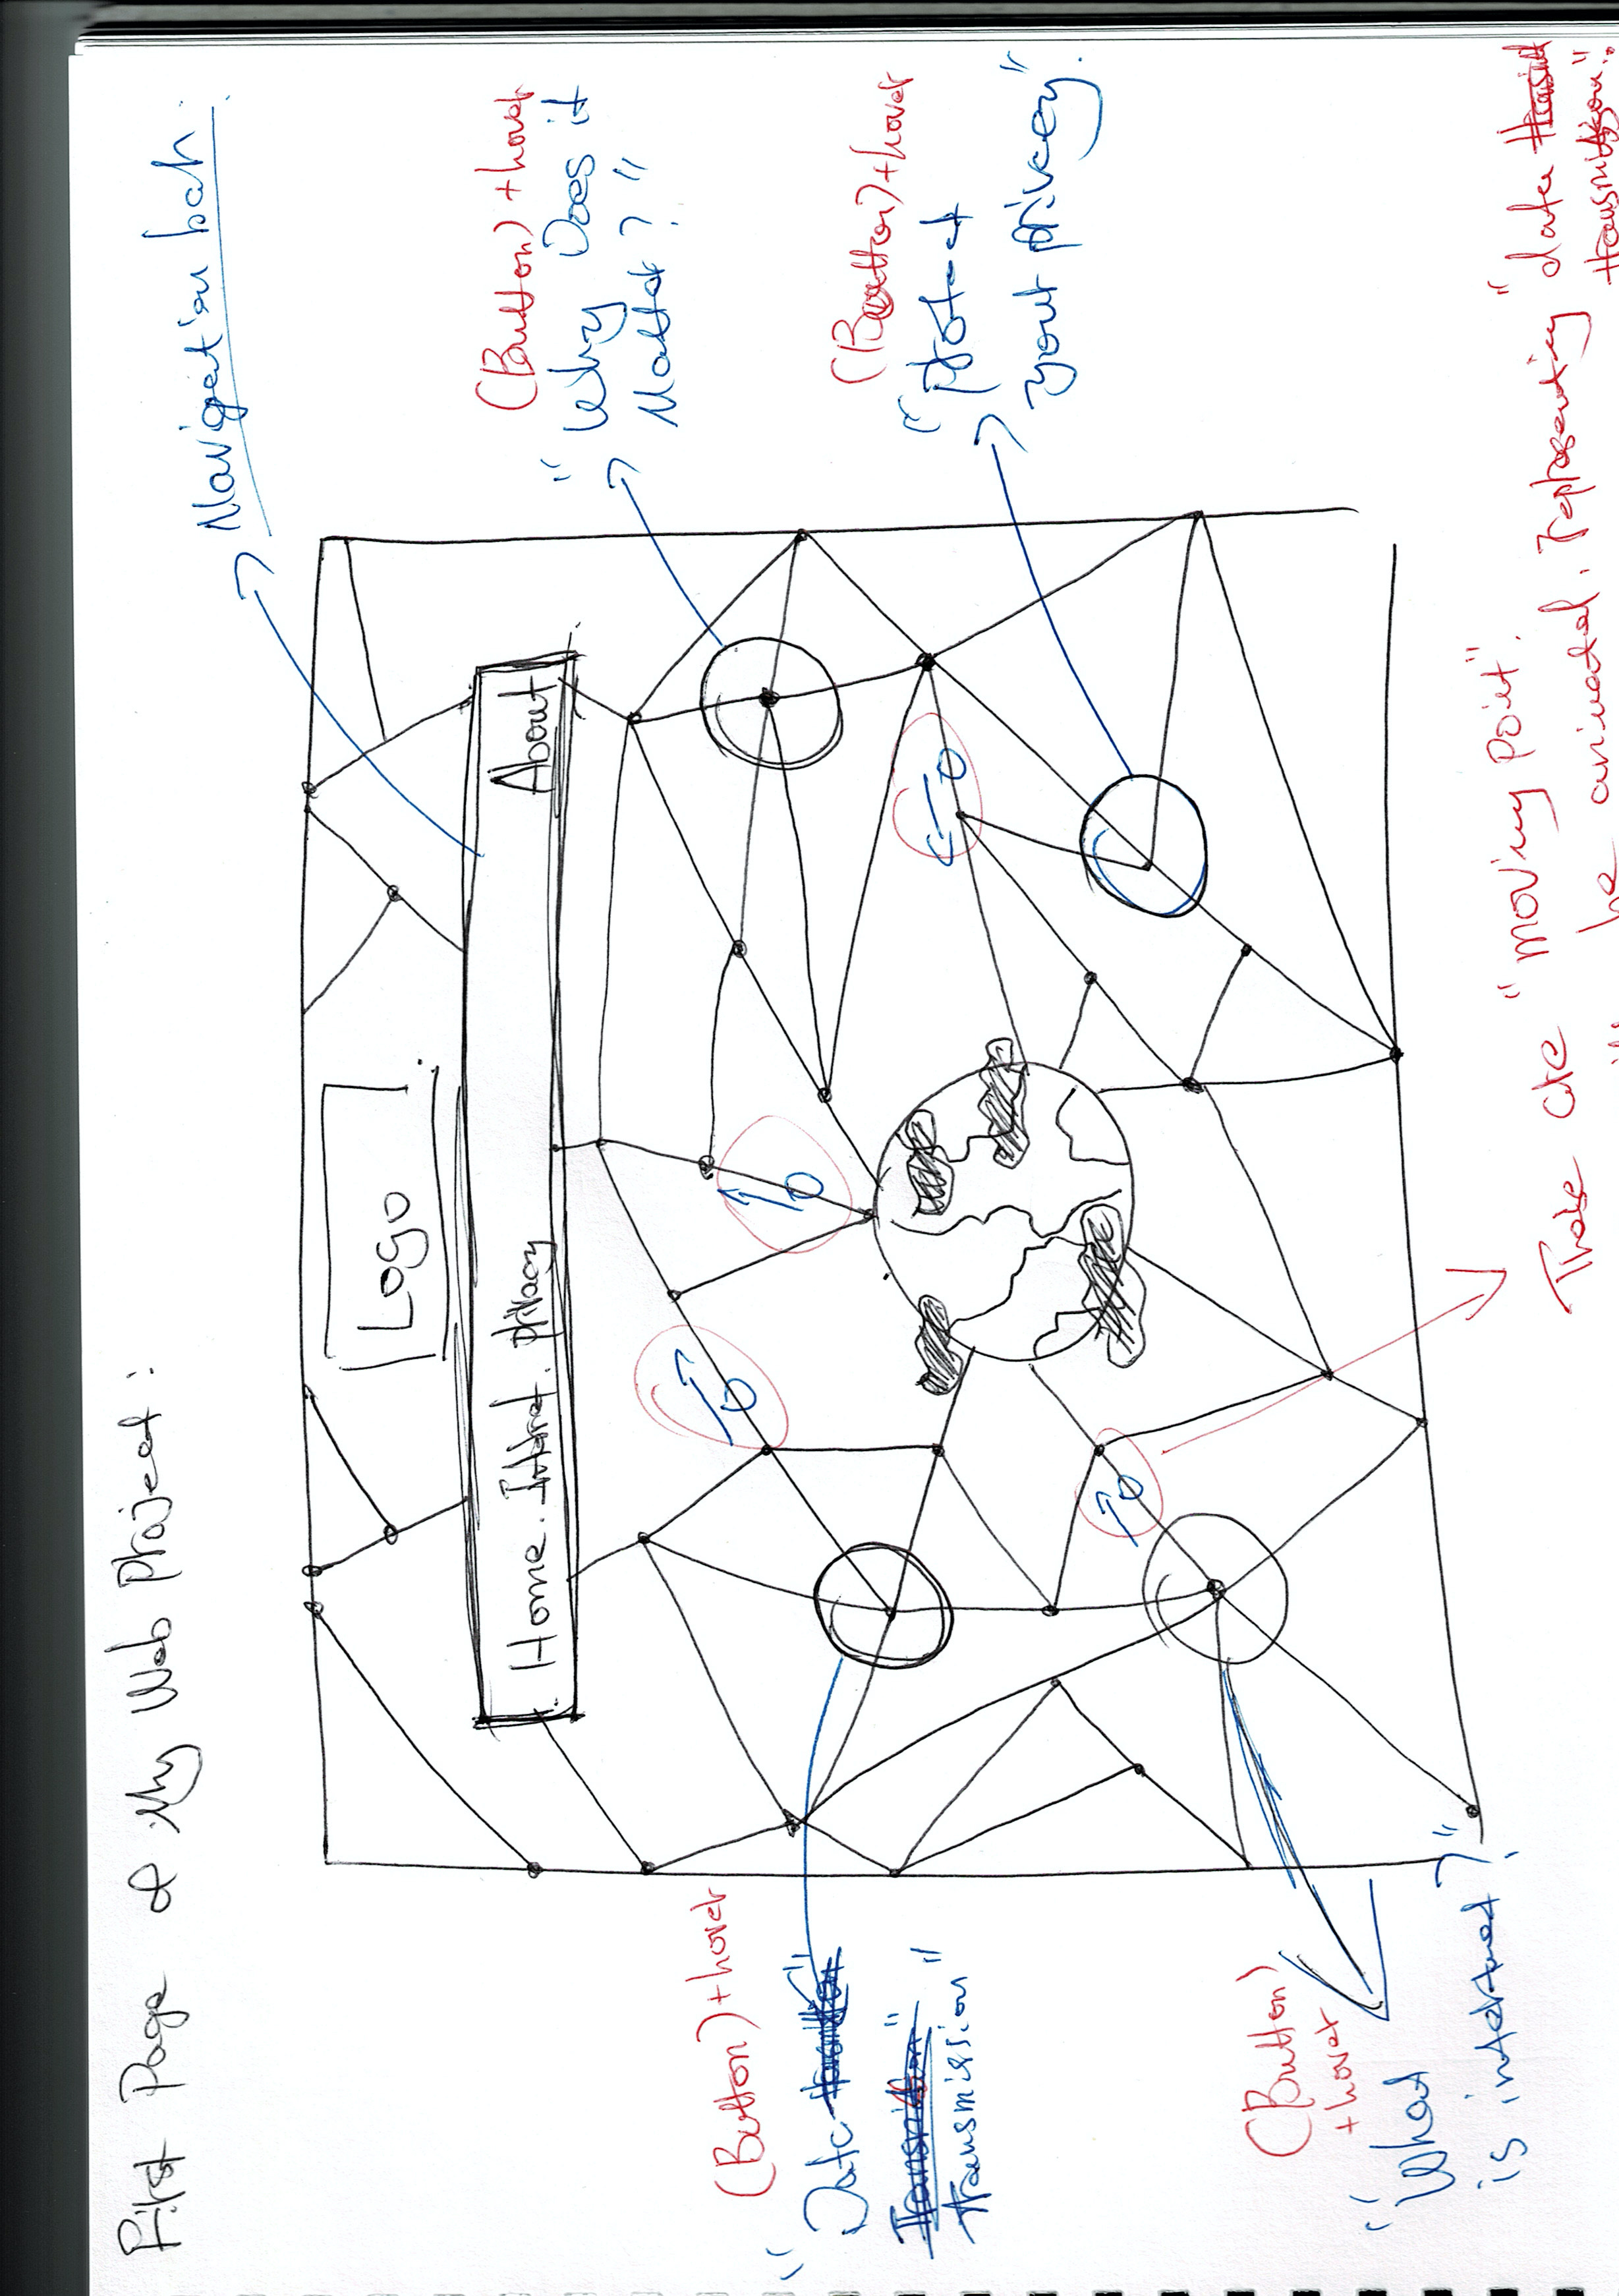 First Page of My Web Project:
Navigation bar.
Logo
Home. Internet. privacy
About
(Button) + hover
"Why Does it
Matter?"
(Button) + hover
"Data
transmission"
(Button) + hover
"protect
your privacy".
(Button)
+ hover
"What
is internet?"
These are "moving point".
be animated. representing "data
transmission".